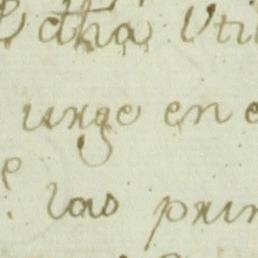 dtha Util
urge en e
las prin